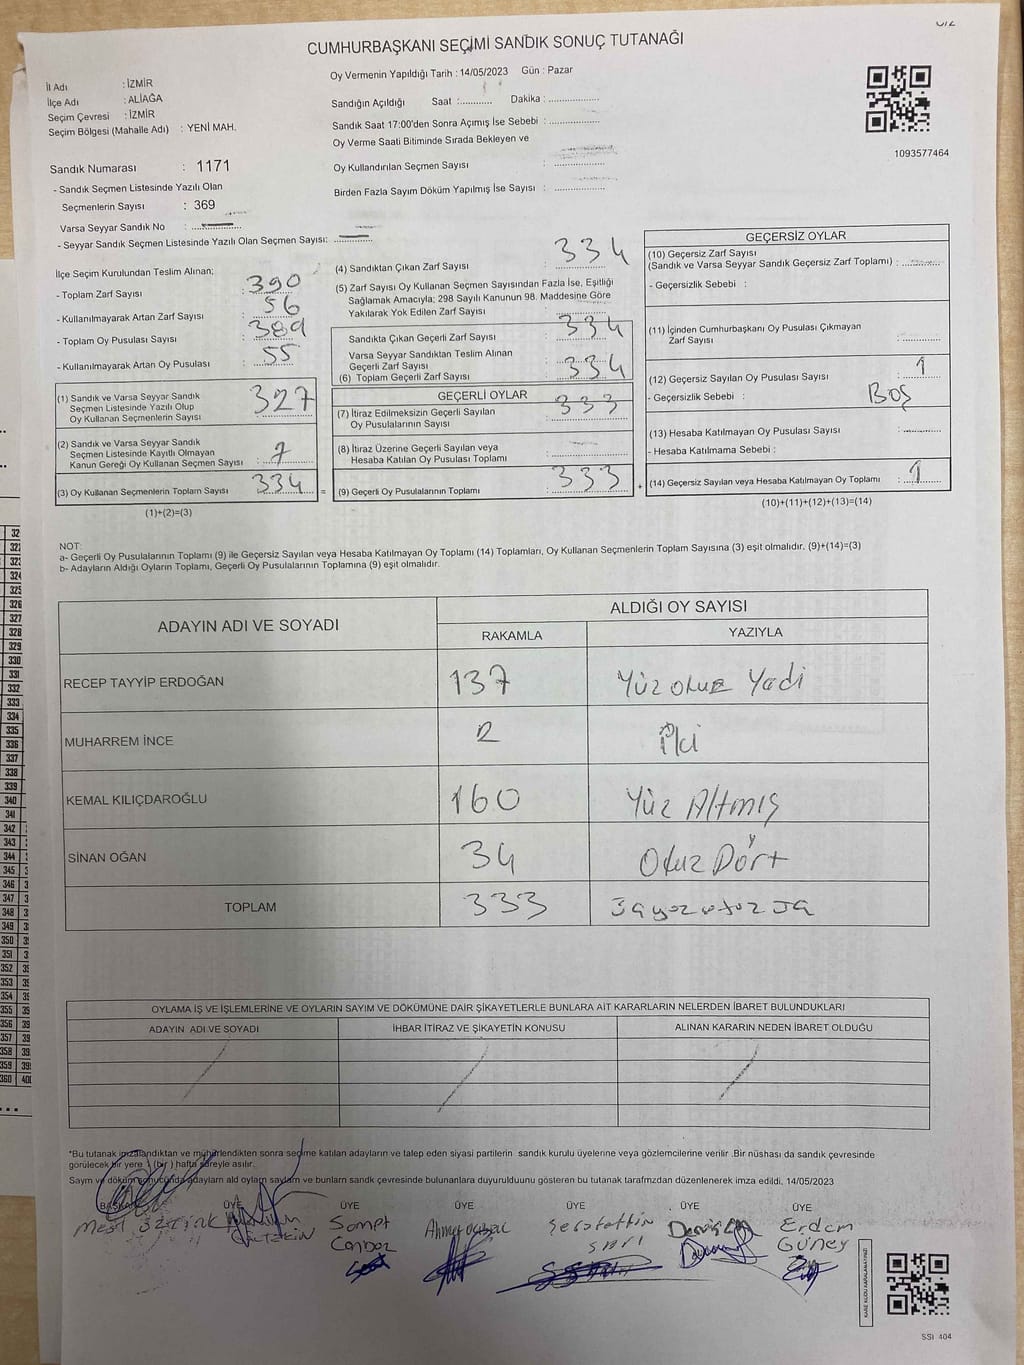 CUMHURBAŞKANI SEÇİMİ SANDIK SONUÇ TUTANAĞI
İl Adı : İZMİR
İlçe Adı : ALİAĞA
Seçim Çevresi : İZMİR
Seçim Bölgesi (Mahalle Adı) : YENİ MAH.
Oy Vermenin Yapıldığı Tarih : 14/05/2023 Gün : Pazar
Sandığın Açıldığı Saat :........... Dakika : ..................
Sandık Saat 17:00'den Sonra Açımış İse Sebebi : ..................
Oy Verme Saati Bitiminde Sırada Bekleyen ve
Oy Kullandırılan Seçmen Sayısı : ..................
Birden Fazla Sayım Döküm Yapılmış İse Sayısı : ..................
1093577464
Sandık Numarası : 1171
- Sandık Seçmen Listesinde Yazılı Olan
Seçmenlerin Sayısı : 369
Varsa Seyyar Sandık No : ..................
- Seyyar Sandık Seçmen Listesinde Yazılı Olan Seçmen Sayısı: .............
İlçe Seçim Kurulundan Teslim Alınan;
- Toplam Zarf Sayısı : 390
- Kullanılmayarak Artan Zarf Sayısı : 56
- Toplam Oy Pusulası Sayısı : 389
- Kullanılmayarak Artan Oy Pusulası : 55
(1) Sandık ve Varsa Seyyar Sandık
Seçmen Listesinde Yazılı Olup
Oy Kullanan Seçmenlerin Sayısı : 327
(2) Sandık ve Varsa Seyyar Sandık
Seçmen Listesinde Kayıtlı Olmayan
Kanun Gereği Oy Kullanan Seçmen Sayısı : 7
(3) Oy Kullanan Seçmenlerin Toplam Sayısı : 334 =
(1)+(2)=(3)
(4) Sandıktan Çıkan Zarf Sayısı : 334
(5) Zarf Sayısı Oy Kullanan Seçmen Sayısından Fazla İse, Eşitliği
Sağlamak Amacıyla; 298 Sayılı Kanunun 98. Maddesine Göre
Yakılarak Yok Edilen Zarf Sayısı :
Sandıkta Çıkan Geçerli Zarf Sayısı : 334
Varsa Seyyar Sandıktan Teslim Alınan
Geçerli Zarf Sayısı :
(6) Toplam Geçerli Zarf Sayısı : 334
GEÇERLİ OYLAR
(7) İtiraz Edilmeksizin Geçerli Sayılan
Oy Pusulalarının Sayısı : 333
(8) İtiraz Üzerine Geçerli Sayılan veya
Hesaba Katılan Oy Pusulası Toplamı :
(9) Geçerli Oy Pusulalarının Toplamı : 333 +
GEÇERSİZ OYLAR
(10) Geçersiz Zarf Sayısı
(Sandık ve Varsa Seyyar Sandık Geçersiz Zarf Toplamı) : .............
- Geçersizlik Sebebi :
(11) İçinden Cumhurbaşkanı Oy Pusulası Çıkmayan
Zarf Sayısı : .............
(12) Geçersiz Sayılan Oy Pusulası Sayısı : 1
- Geçersizlik Sebebi : BOŞ
(13) Hesaba Katılmayan Oy Pusulası Sayısı : .............
- Hesaba Katılmama Sebebi :
(14) Geçersiz Sayılan veya Hesaba Katılmayan Oy Toplamı : 1
(10)+(11)+(12)+(13)=(14)
NOT:
a- Geçerli Oy Pusulalarının Toplamı (9) ile Geçersiz Sayılan veya Hesaba Katılmayan Oy Toplamı (14) Toplamları, Oy Kullanan Seçmenlerin Toplam Sayısına (3) eşit olmalıdır. (9)+(14)=(3)
b- Adayların Aldığı Oyların Toplamı, Geçerli Oy Pusulalarının Toplamına (9) eşit olmalıdır.
ADAYIN ADI VE SOYADI ALDIĞI OY SAYISI
RAKAMLA YAZIYLA
RECEP TAYYİP ERDOĞAN 137 Yüz otuz Yedi
MUHARREM İNCE 2 iki
KEMAL KILIÇDAROĞLU 160 Yüz Altmış
SİNAN OĞAN 34 Otuz Dört
TOPLAM 333
OYLAMA İŞ VE İŞLEMLERİNE VE OYLARIN SAYIM VE DÖKÜMÜNE DAİR ŞİKAYETLERLE BUNLARA AİT KARARLARIN NELERDEN İBARET BULUNDUKLARI
ADAYIN ADI VE SOYADI İHBAR İTİRAZ VE ŞİKAYETİN KONUSU ALINAN KARARIN NEDEN İBARET OLDUĞU
*Bu tutanak imzalandıktan ve mühürlendikten sonra seçime katılan adayların ve talep eden siyasi partilerin sandık kurulu üyelerine veya gözlemcilerine verilir .Bir nüshası da sandık çevresinde
görülecek bir yere 1 (bir ) hafta süreyle asılır.
Sayım ve döküm sonucunda adayların ald oyların sayların ve bunların sandk çevresinde bulunanlara duyurulduunu gösteren bu tutanak tarafmzdan düzenlenerek imza edildi. 14/05/2023
BAŞKAN ÜYE ÜYE ÜYE ÜYE ÜYE ÜYE
Erdem
Güney
KARE KODU KARALAMAYINIZ!
SSİ 404